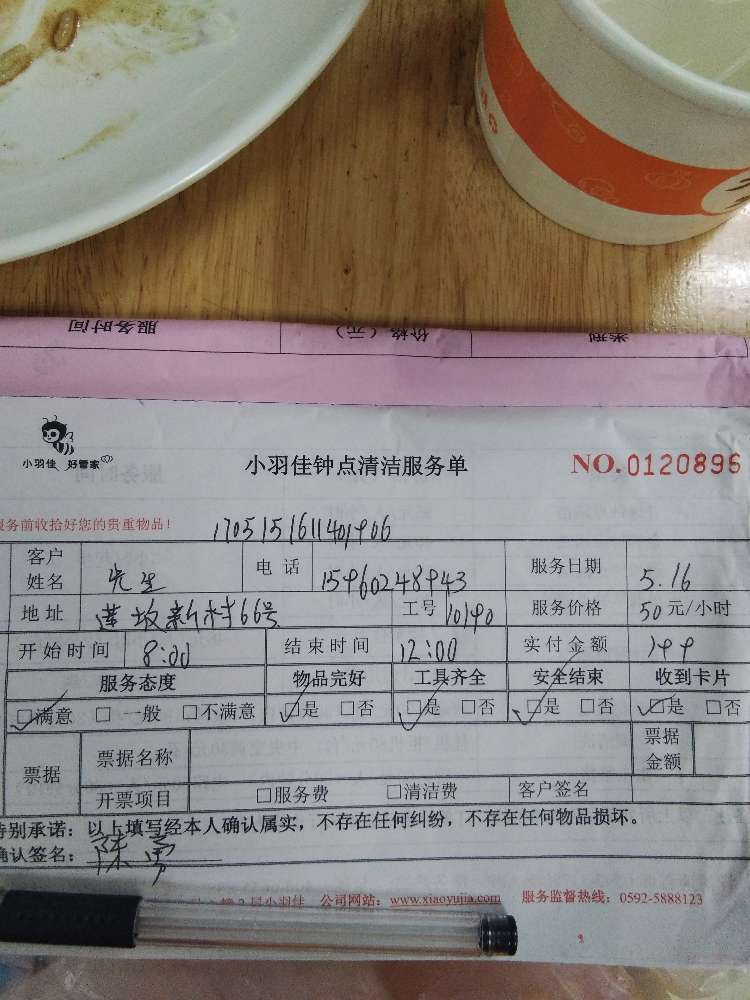 服务时间 价格（元） 类型
小羽佳 好管家
小羽佳钟点清洁服务单
NO.0120896
服务前收拾好您的贵重物品！
客户姓名 先生 电话 15960248943 服务日期 5.16
地址 莲坂新村66号 工号 10190 服务价格 50元/小时
开始时间 8:00 结束时间 12:00 实付金额
服务态度 物品完好 工具齐全 安全结束 收到卡片
☑满意 □一般 □不满意 ☑是 □否 ☑是 □否 ☑是 □否 ☑是 □否
票据 票据名称 票据金额
开票项目 □服务费 □清洁费 客户签名
特别承诺：以上填写经本人确认属实，不存在任何纠纷，不存在任何物品损坏。
确认签名：陈勇
小羽佳 公司网站：www.xiaoyujia.com 服务监督热线：0592-5888123